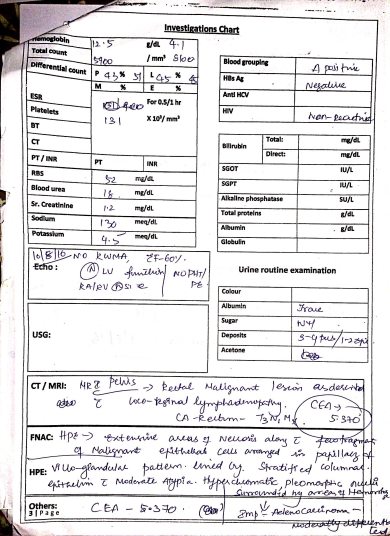 Investigations Chart
Hemoglobin 12.5 g/dL 4.1
Total count 5900 / mm³ 5800
Differential count P 43 % 51 L 45 %
M % E %
ESR For 0.5/1 hr
Platelets 131 X 10³/ mm³
BT
CT
PT / INR PT INR
RBS 92 mg/dL
Blood urea 18 mg/dL
Sr. Creatinine 1.2 mg/dL
Sodium 130 meq/dL
Potassium 4.5 meq/dL
Blood grouping A positive
HBs Ag Negative
Anti HCV
HIV Non-reactive
Bilirubin Total: mg/dL
Direct: mg/dL
SGOT IU/L
SGPT IU/L
Alkaline phosphatase SU/L
Total proteins g/dL
Albumin g/dL
Globulin
10/8/10 NO RWMA, EF-60%.
Echo : N LV function NO PHT/
RA/RV N SIZE PE
Urine routine examination
Colour
Albumin Trace
Sugar Nil
Deposits 3-4 pus/1-2 epi
Acetone
USG:
CT / MRI: MRI Pelvis → Rectal Malignant lesion as described
c loco-reginal lymphadenopathy. CEA →
CA-Rectum- T3N1Mx 5.370
FNAC: HPE → Extensive areas of Necrosis along c fragments
of Malignant epithelial cells arranged in papillary
HPE: Villo-glandular pattern. lined by stratified columnar
epithelium c Moderate Atypia. Hyperchromatic pleomorphic nuclei
surrounded by areas of Hemorrhage
Others: CEA - 5.370 Imp → Adenocarcinoma -
3 | Page moderately differentia
ted